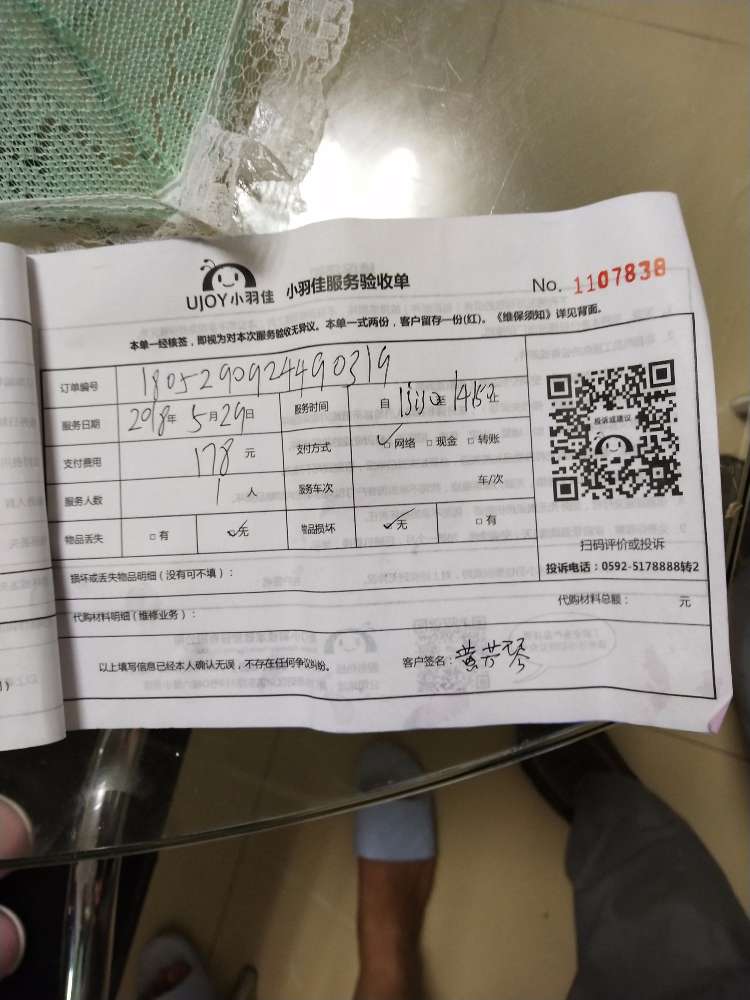 UJOY小羽佳 小羽佳服务验收单 No. 1107838
本单一经核签，即视为对本次服务验收无异议。本单一式两份，客户留存一份(红)。《维保须知》详见背面。
订单编号 1805290924490319
服务日期 2018年 5月29日 服务时间 自 至 止
支付费用 178 元 支付方式 ✓□网络 □现金 □转账
服务人数 1 人 服务车次 车/次
物品丢失 □有 ✓无 物品损坏 ✓无 □有
投诉或建议
扫码评价或投诉
投诉电话：0592-5178888转2
损坏或丢失物品明细（没有可不填）：
代购材料明细（维修业务）： 代购材料总额： 元
以上填写信息已经本人确认无误，不存在任何争议纠纷。 客户签名：黄芸琴